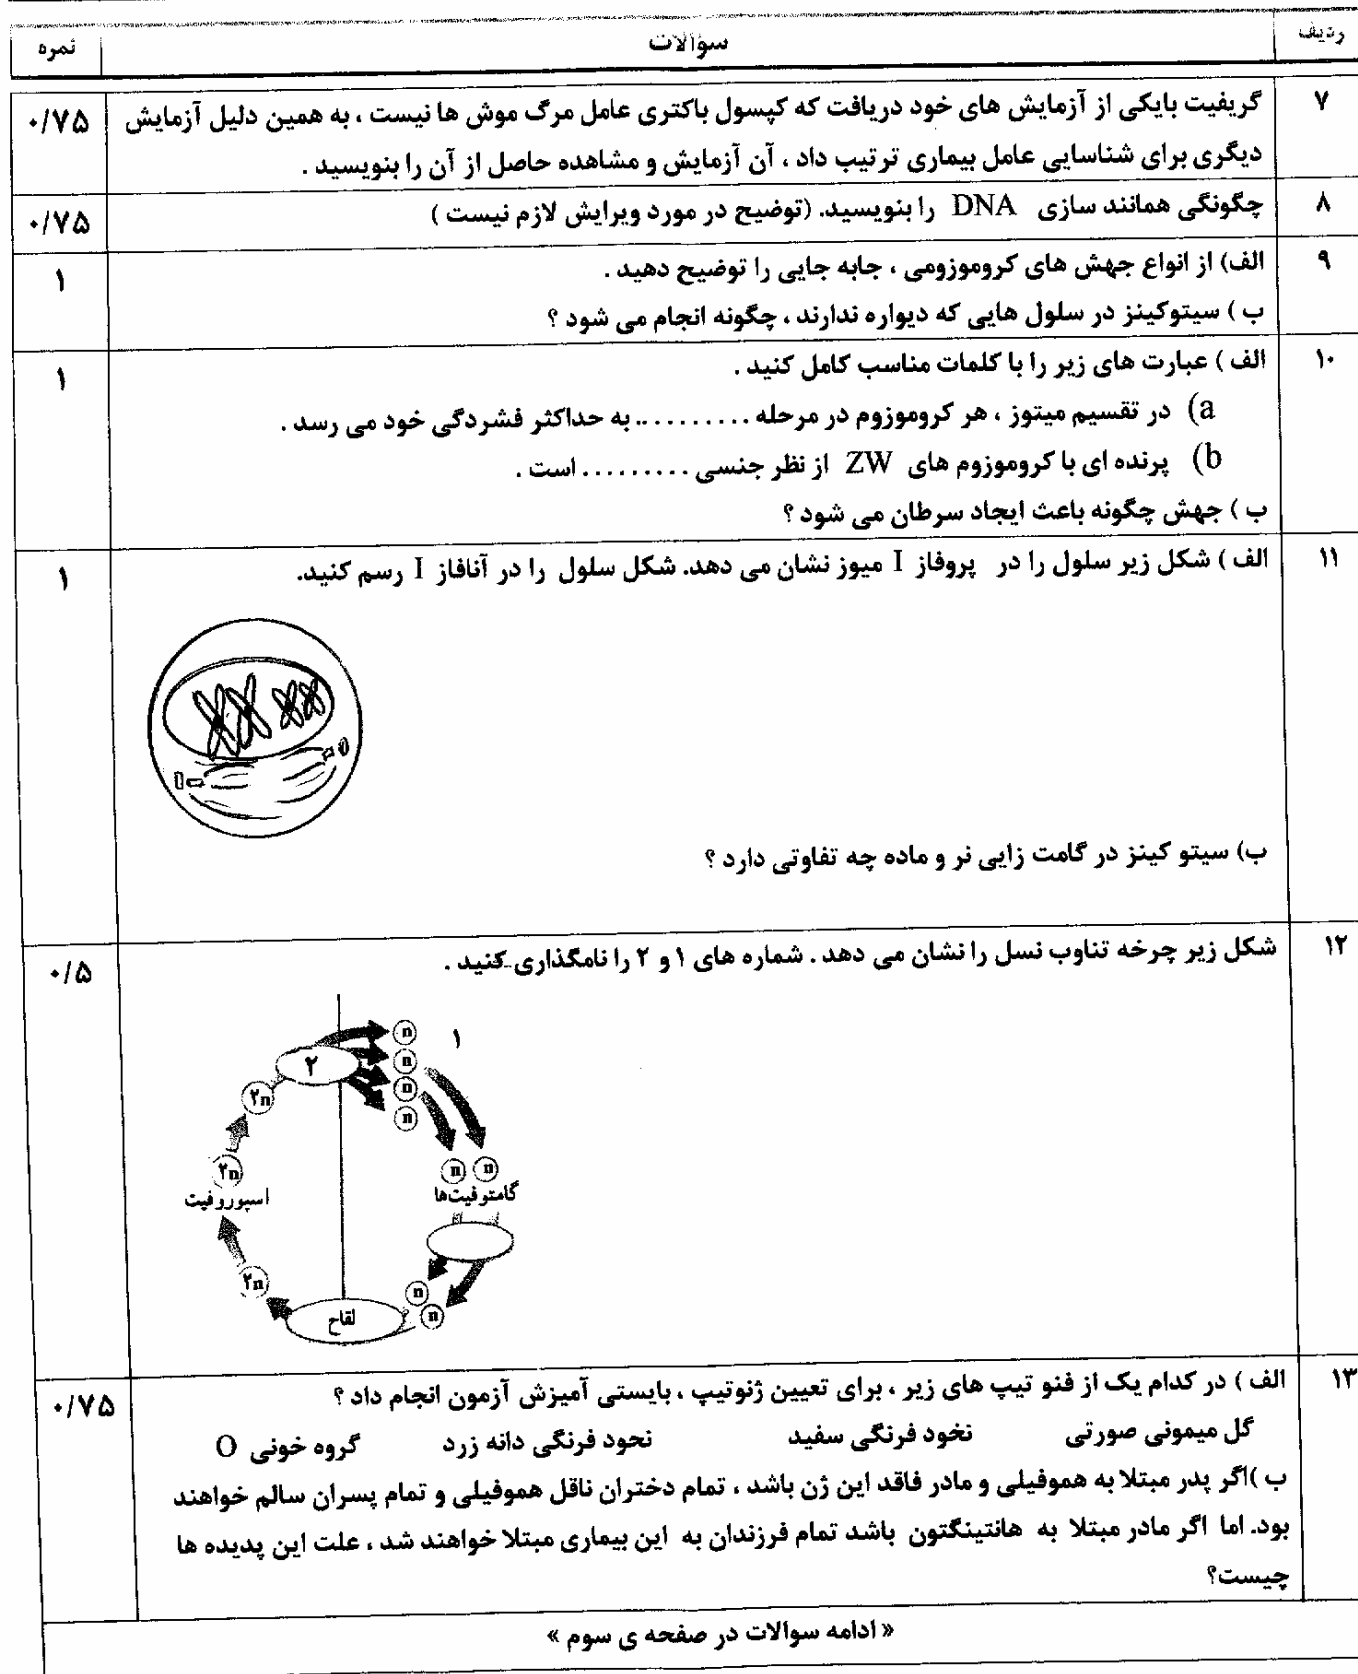 ردیف سؤالات نمره
۷ گریفیت بایکی از آزمایش های خود دریافت که کپسول باکتری عامل مرگ موش ها نیست ، به همین دلیل آزمایش ۰/۷۵
دیگری برای شناسایی عامل بیماری ترتیب داد ، آن آزمایش و مشاهده حاصل از آن را بنویسید .
۸ چگونگی همانند سازی DNA را بنویسید. (توضیح در مورد ویرایش لازم نیست ) ۰/۷۵
۹ الف) از انواع جهش های کروموزومی ، جابه جایی را توضیح دهید . ۱
ب ) سیتوکینز در سلول هایی که دیواره ندارند ، چگونه انجام می شود ؟
۱۰ الف ) عبارت های زیر را با کلمات مناسب کامل کنید . ۱
a) در تقسیم میتوز ، هر کروموزوم در مرحله ........... به حداکثر فشردگی خود می رسد .
b) پرنده ای با کروموزوم های ZW از نظر جنسی ......... است .
ب ) جهش چگونه باعث ایجاد سرطان می شود ؟
۱۱ الف ) شکل زیر سلول را در پروفاز I میوز نشان می دهد. شکل سلول را در آنافاز I رسم کنید. ۱
ب) سیتو کینز در گامت زایی نر و ماده چه تفاوتی دارد ؟
۱۲ شکل زیر چرخه تناوب نسل را نشان می دهد . شماره های ۱ و ۲ را نامگذاری کنید . ۰/۵
n ۱
۲ n
۲n n
n
۲n n n
اسپوروفیت گامتوفیت‌ها
۲n n
لقاح n
۱۳ الف ) در کدام یک از فنو تیپ های زیر ، برای تعیین ژنوتیپ ، بایستی آمیزش آزمون انجام داد ؟ ۰/۷۵
گل میمونی صورتی نخود فرنگی سفید نحود فرنگی دانه زرد گروه خونی O
ب )اگر پدر مبتلا به هموفیلی و مادر فاقد این ژن باشد ، تمام دختران ناقل هموفیلی و تمام پسران سالم خواهند
بود. اما اگر مادر مبتلا به هانتینگتون باشد تمام فرزندان به این بیماری مبتلا خواهند شد ، علت این پدیده ها
چیست؟
« ادامه سوالات در صفحه ی سوم »